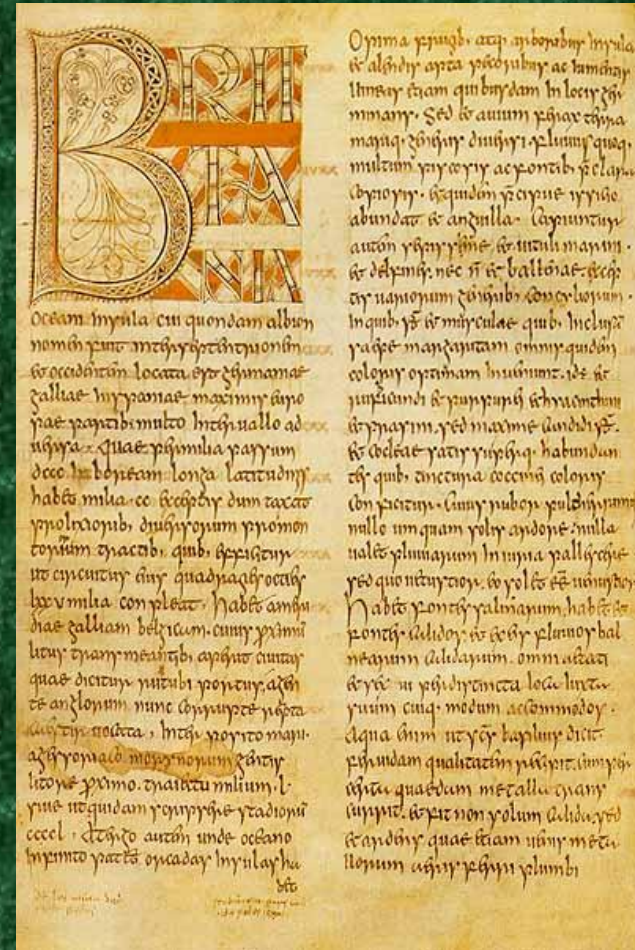 BRIT
TA
NIA
oceani insula cui quondam albion
nomen fuit inter septentrionem
et occidentem locata est germaniae
galliae hispaniae maximis euro
pae partibus multo interuallo ad
uersa. quae per milia passuum
dccc in boream longa latitudinis
habet milia. cc exceptis dum taxat
prolixioribus diuersorum promon
toriorum tractibus, quibus efficitur
ut circuitus eius quadragies octies
lxxu milia conpleat. habet a meri
die galliam belgicam. cuius proximum
litus transmeantibus aperit ciuitas
quae dicitur rutubi portus, a gen
te anglorum nunc corrupte reptacaestir uocata, interposito mari.
a gessoriaco morynorum gentis
litore proximo. traiectu milium. l
siue ut quidam scripsere stadiorum
ccccl. A tergo autem unde oceano
infinito patet orcadas insulas ha
bet
Opima frugibus atque arboribus insula
et alendis apta pecoribus ac iumentis
uineas etiam quibusdam in locis ger
minans. Sed et auium ferax terra
marique generis diuersi. fluuiis quoque
multum piscosis ac fontibus praeclara
copiosis. et quidem praecipue issicio
abundat et anguilla. Capiuntur
autem saepissime et uituli marini.
et delphines nec non et ballenae. excep
tis uariorum generibus concyliorum.
in quibus sunt et musculae quibus inclusam
saepe margaritam omnis quidem
coloris optimam inueniunt. id est et
rubicundi et purpurei et hyacinthini
et prasini, sed maxime candidi. sunt
et cocleae satis superque habundan
tes quibus tinctura coccinei coloris
conficitur. Cuius rubor pulcherrimus
nullo umquam solis ardore. nulla
ualet pluuiarum iniuria pallescere
sed quo uetustior. eo solet esse uenustior
Habet fontes salinarum, habet et
fontes calidos et ex eis fluuios bal
nearum calidarum. omni aetati
et sexui per distincta loca iuxta
suum cuique modum accommodos.
Aqua enim ut scs basilius dicit
feruidam qualitatem recipit. cum per
certa quaedam metalla trans
currit. et fit non solum calida, sed
et ardens quae etiam uenis meta
llorum aeris ferri plumbi